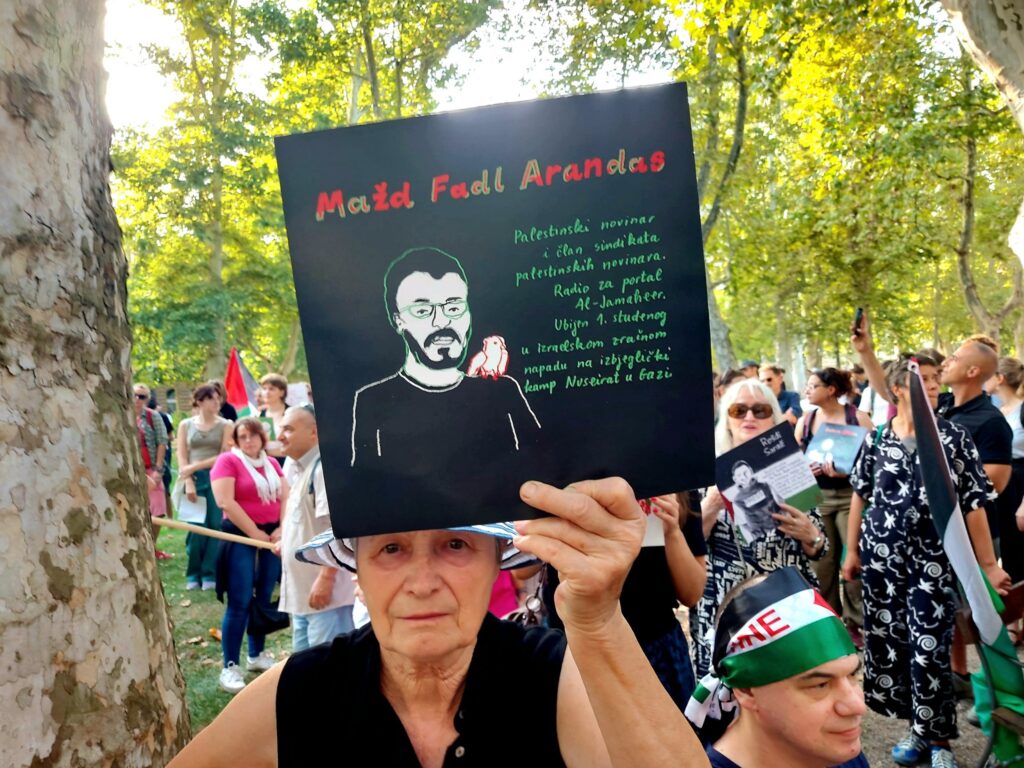 Mažd Fadl Arandas
Palestinski novinar
i član sindikata
palestinskih novinara.
Radio za portal
Al-Jamaheer.
Ubijen 1. studenog
u izraelskom zračnom
napadu na izbjeglički
kamp Nuseirat u Gazi
Rešdi
Saradž
NE